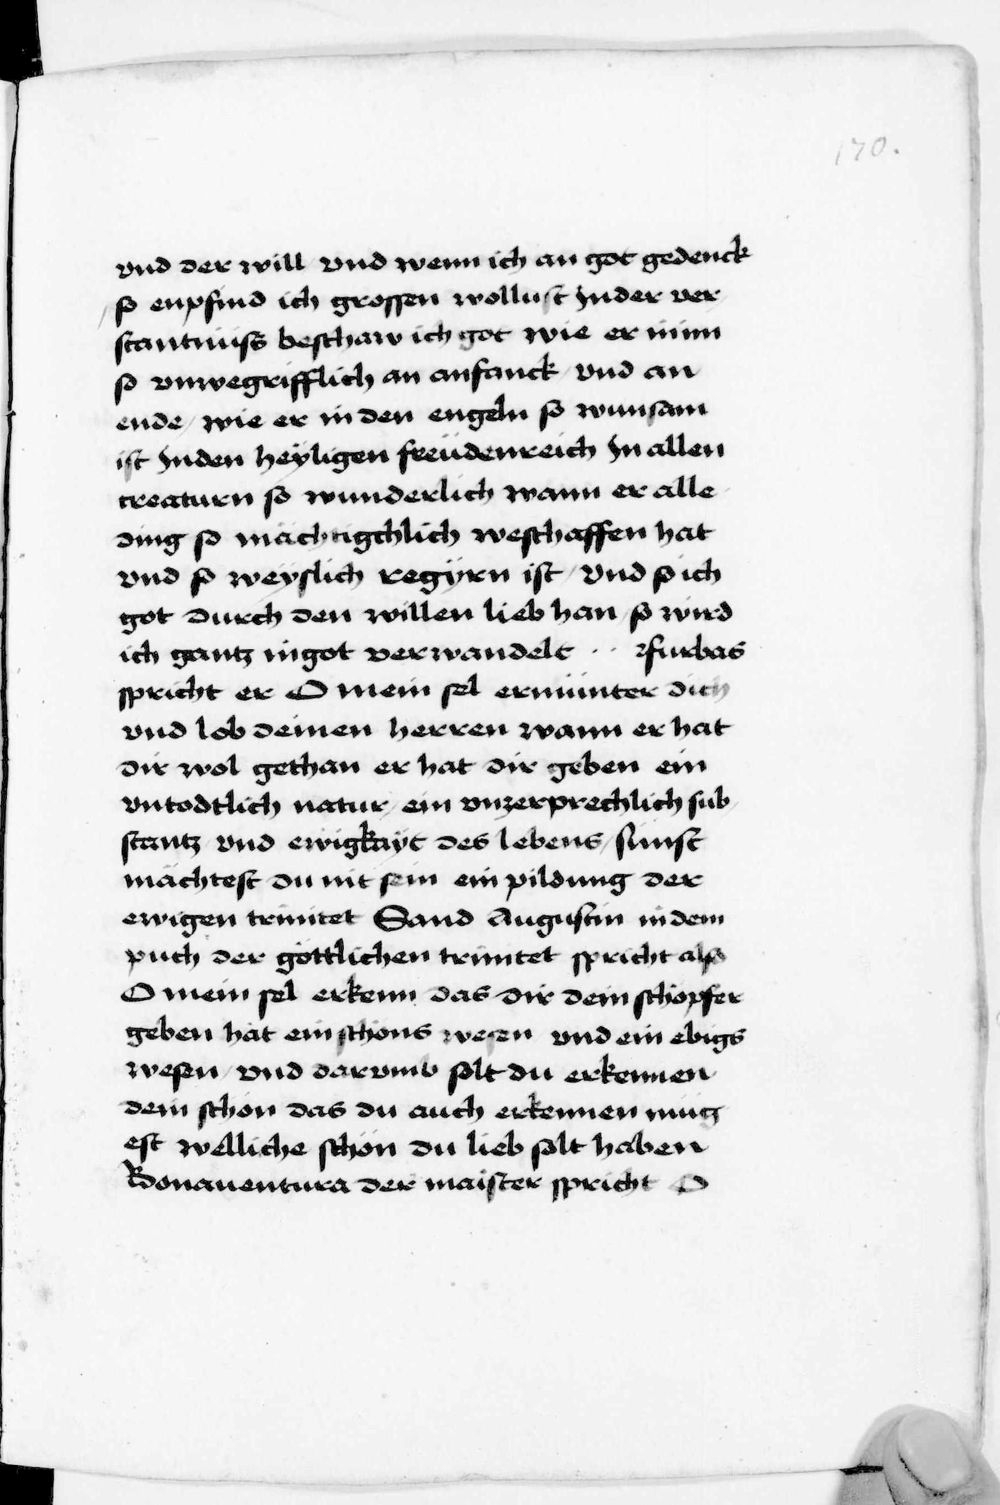 170.
vnd der will vnd wenn ich an got gedenck
so enpfind ich grossen wollust Inder ver
stantnüsß beschaw ich got wie er inim
so vnwegrifflich an anfanck / vnd an
ende / wie er in den engeln so wunsam
ist Inden heyligen freüdenreich In allen
creaturn so wunderlich wann er alle
ding so mächtigchlich weschaffen hat
vnd so weyslich regyrn ist / vnd so ich
got durch den willen lieb han / so wird
ich gantz ingot verwandelt ·· furbas
spricht er O mein sel ermünter dich
vnd lob deinen herren wann er hat
dir wol gethan er hat dir geben ein
vntodtlich natur / ein vnzerprechlich sub
stantz / vnd ewigkayt des lebens / sünst
mächtest du nit sein ein pildung der
ewigen trinitet Sand Augustin indem
puch der göttlichen trinitet spricht also
O mein sel erkenn das dir dein schöpfer
geben hat ein schöns wesen vnd ein ebigs
wesen / vnd darvmb solt du erkennen
dein schön das du auch erkennen müg
est welliche schön du lieb solt haben
Bonauentura der maister spricht O